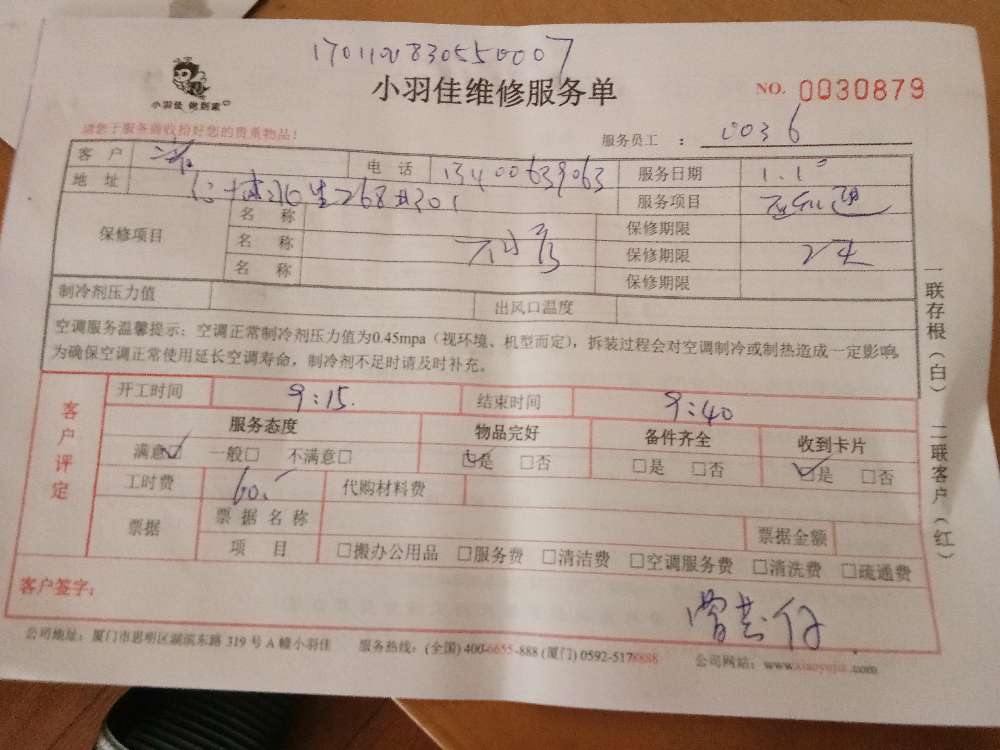 小羽佳维修服务单
小羽佳 做到家
NO. 0030879
请您于服务前收拾好您的贵重物品！
服务员工 ： 0036
客户 电话 13400639063 服务日期 1.1
地址 服务项目
保修项目 名称 保修期限
名称 保修期限 2天
名称 保修期限
制冷剂压力值 出风口温度
空调服务温馨提示：空调正常制冷剂压力值为0.45mpa（视环境、机型而定），拆装过程会对空调制冷或制热造成一定影响，
为确保空调正常使用延长空调寿命，制冷剂不足时请及时补充。
客户评定
开工时间 9:15. 结束时间 9:40
服务态度 物品完好 备件齐全 收到卡片
满意☑ 一般□ 不满意□ ☑是 □否 □是 □否 ☑是 □否
工时费 60. 代购材料费
票据 票据名称 票据金额
项目 □搬办公用品 □服务费 □清洁费 □空调服务费 □清洗费 □疏通费
客户签字：
公司地址：厦门市思明区湖滨东路 319 号 A 幢小羽佳 服务热线：(全国) 400-6655-888 (厦门) 0592-5178888 公司网站：www.xiaoyujia.com
一联存根（白） 二联客户（红）